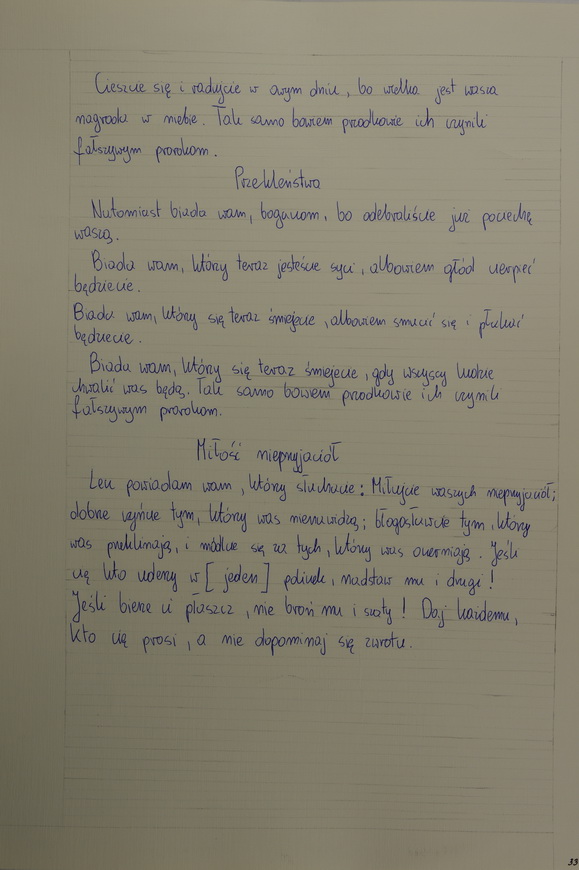 Cieszcie się i radujcie w owym dniu, bo wielka jest wasza
nagroda w niebie. Tak samo bowiem przodkowie ich czynili
fałszywym prorokom.
Przekleństwa
Natomiast biada wam, bogaczom, bo odebraliście już pociechę
waszą.
Biada wam, którzy teraz jesteście syci, albowiem głód cierpieć
będziecie.
Biada wam, którzy się teraz śmiejecie, albowiem smucić się i płakać
będziecie.
Biada wam, którzy się teraz śmiejecie, gdy wszyscy ludzie
chwalić was będą. Tak samo bowiem przodkowie ich czynili
fałszywym prorokom.
Miłość nieprzyjaciół
Lecz powiadam wam, którzy słuchacie: Miłujcie waszych nieprzyjaciół;
dobrze czyńcie tym, którzy was nienawidzą; błogosławcie tym, którzy
was przeklinają, i módlcie się za tych, którzy was oczerniają. Jeśli
cię kto uderzy w [jeden] policzek, nadstaw mu i drugi!
Jeśli bierze ci płaszcz, nie broń mu i szaty! Daj każdemu,
kto cię prosi, a nie dopominaj się zwrotu.
33